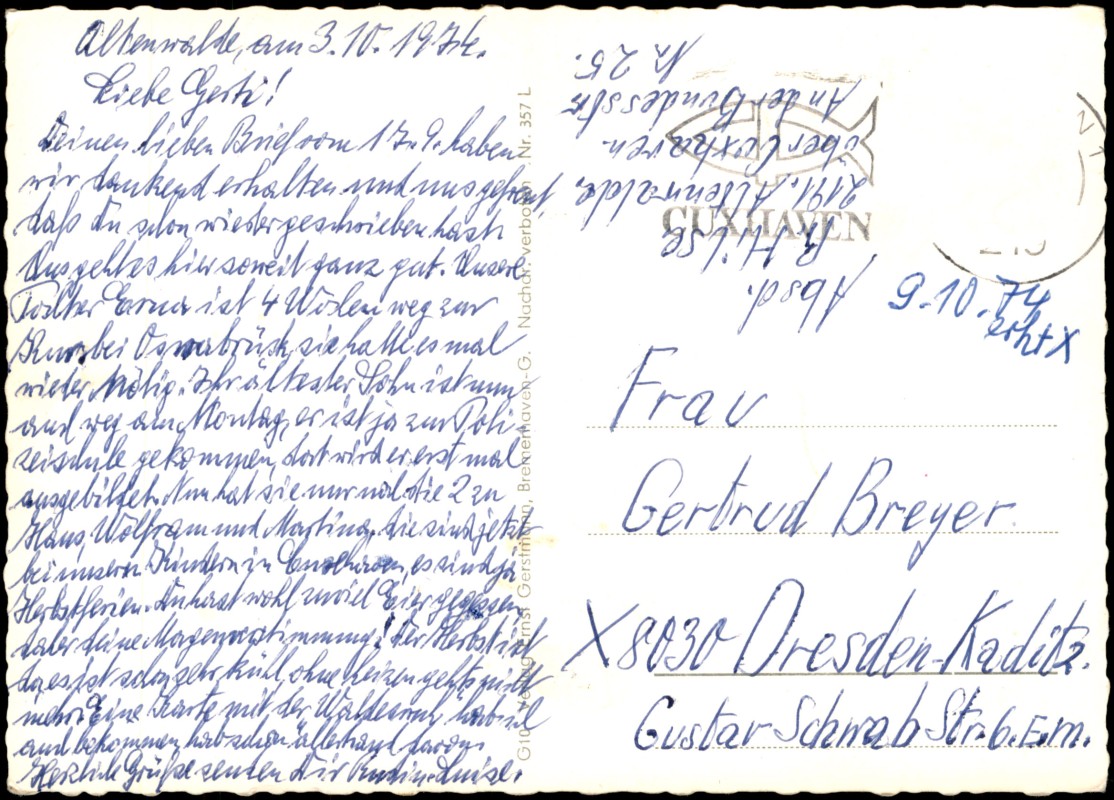 Altenwalde, am 3.10.1974.
Liebe Gerti!
Deinen lieben Brief vom 17.9. haben
wir dankend erhalten und uns gefreut,
daß Du schon wieder geschrieben hast.
Uns geht es hier soweit ganz gut. Unsere
Tochter Erna ist 4 Wochen weg zur
Kur bei Osnabrück, sie hatte es mal
wieder nötig. Ihr ältester Sohn ist nun
auch weg am Montag, er ist ja zur Poli-
zeischule gekommen, dort wird er erst mal
ausgebildet. Nun hat sie nur noch die 2 zu
Haus, Wolfram und Martina, die sind jetzt
bei unseren Kindern in Cuxhaven, es sind ja
Herbstferien. Du hast wohl zuviel Eier gegessen
daher deine Magenverstimmung! Der Herbst ist
da es ist schon sehr kühl, ohne heizen geht's nicht
mehr. Eine Karte mit der hab ich
auch bekommen hab schon allerhand davon.
Herzliche Grüße senden Dir Luise.
Verlag Ernst Gerstmann, Bremerhaven-G. Nachdr. verboten Nr. 357 L
Absd.
Hilse
2191. Altenwalde.
über Cuxhaven.
An der Bundesstr.
Nr. 25.
CUXHAVEN
9.10.74
erht X
Frau
Gertrud Breyer.
X 8030 Dresden-Kaditz.
Gustav Schwab Str. 6. Em.